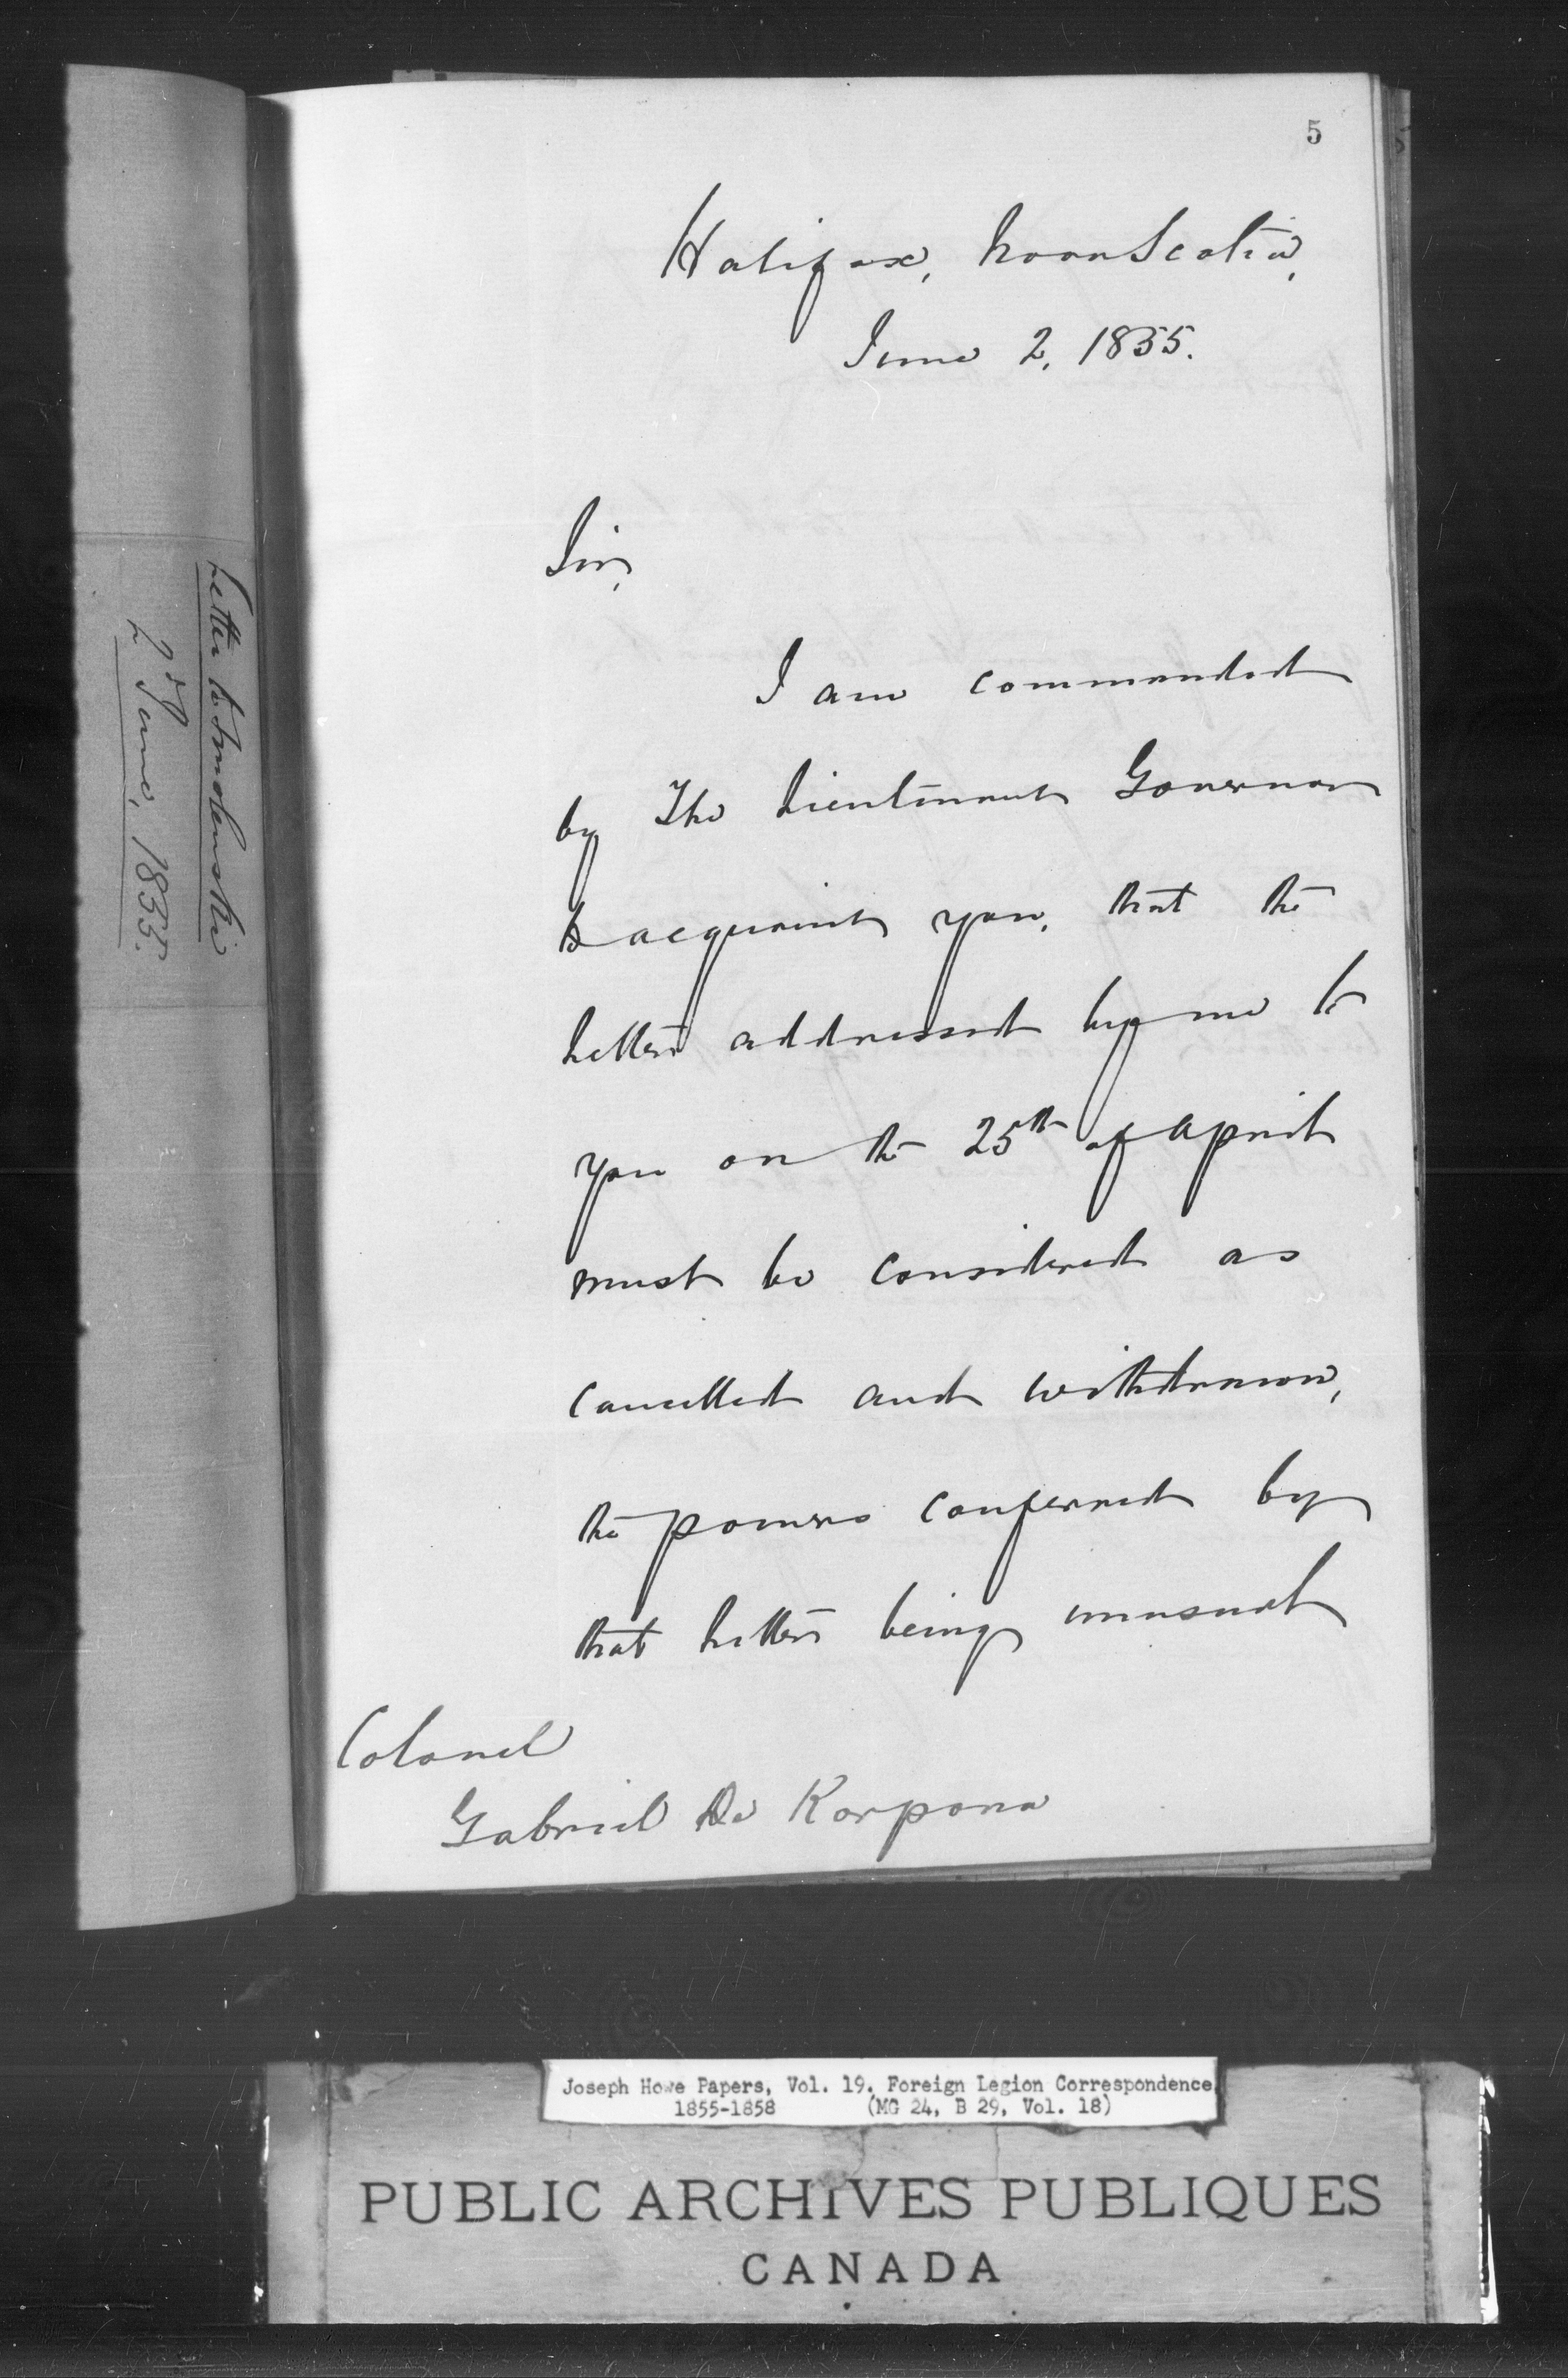 5
Halifax, Nova Scotia,
June 2, 1855.
Sir,
I am commanded
by The Lieutenant Governor
to acquaint you, that the
Letter addressed by me to
you on the 25th of April
must be considered as
cancelled and withdrawn,
the powers conferred by
that Letter being unusual
Colonel
Gabriel De Korpona
Letter to Smolenski
2nd June, 1855.
Joseph Howe Papers, Vol. 19. Foreign Legion Correspondence
1855-1858 (MG 24, B 29, Vol. 18)
PUBLIC ARCHIVES PUBLIQUES
CANADA